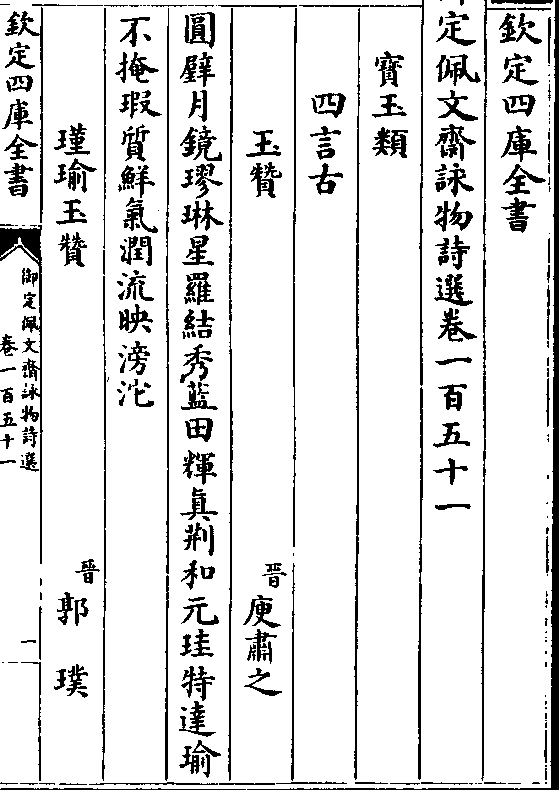 欽定四庫全書
定佩文齋詠物詩選卷一百五十一
寶玉類
四言古
玉贊 晉 庾肅之
圓璧月鏡璆琳星羅結秀藍田輝真荆和元珪特達瑜
不掩瑕質鮮氣潤流映滂沱
瑾瑜玉贊 晉 郭璞
欽定四庫全書
御定佩文齋詠物詩選
卷一百五十一
一